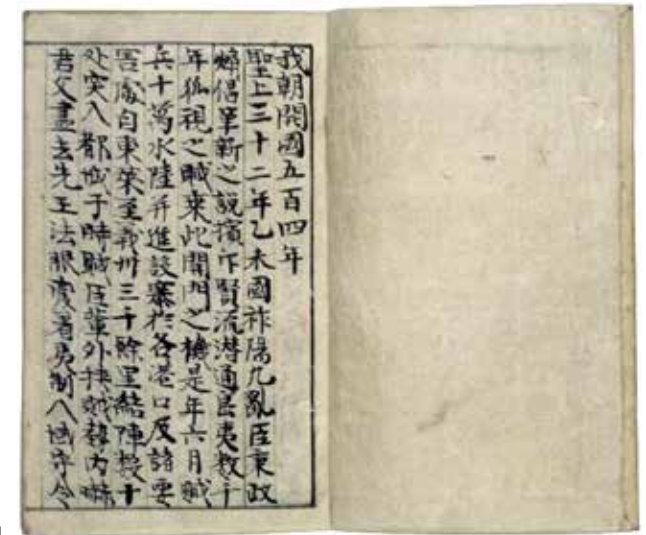 我朝開國五百四年
聖上三十二年乙未國祚陽九亂臣秉政
倡革新之說擯斥賢流潛通島夷數千
年孤視之賊來此開門之機是年六月賊
兵十萬水陸并進設寨於各港口及諸要
害處自東萊至義州三千餘里結陣數十
处突入都城于時賊臣輩外挾賊勢內
君父盡去先王法服變着夷制八域守令